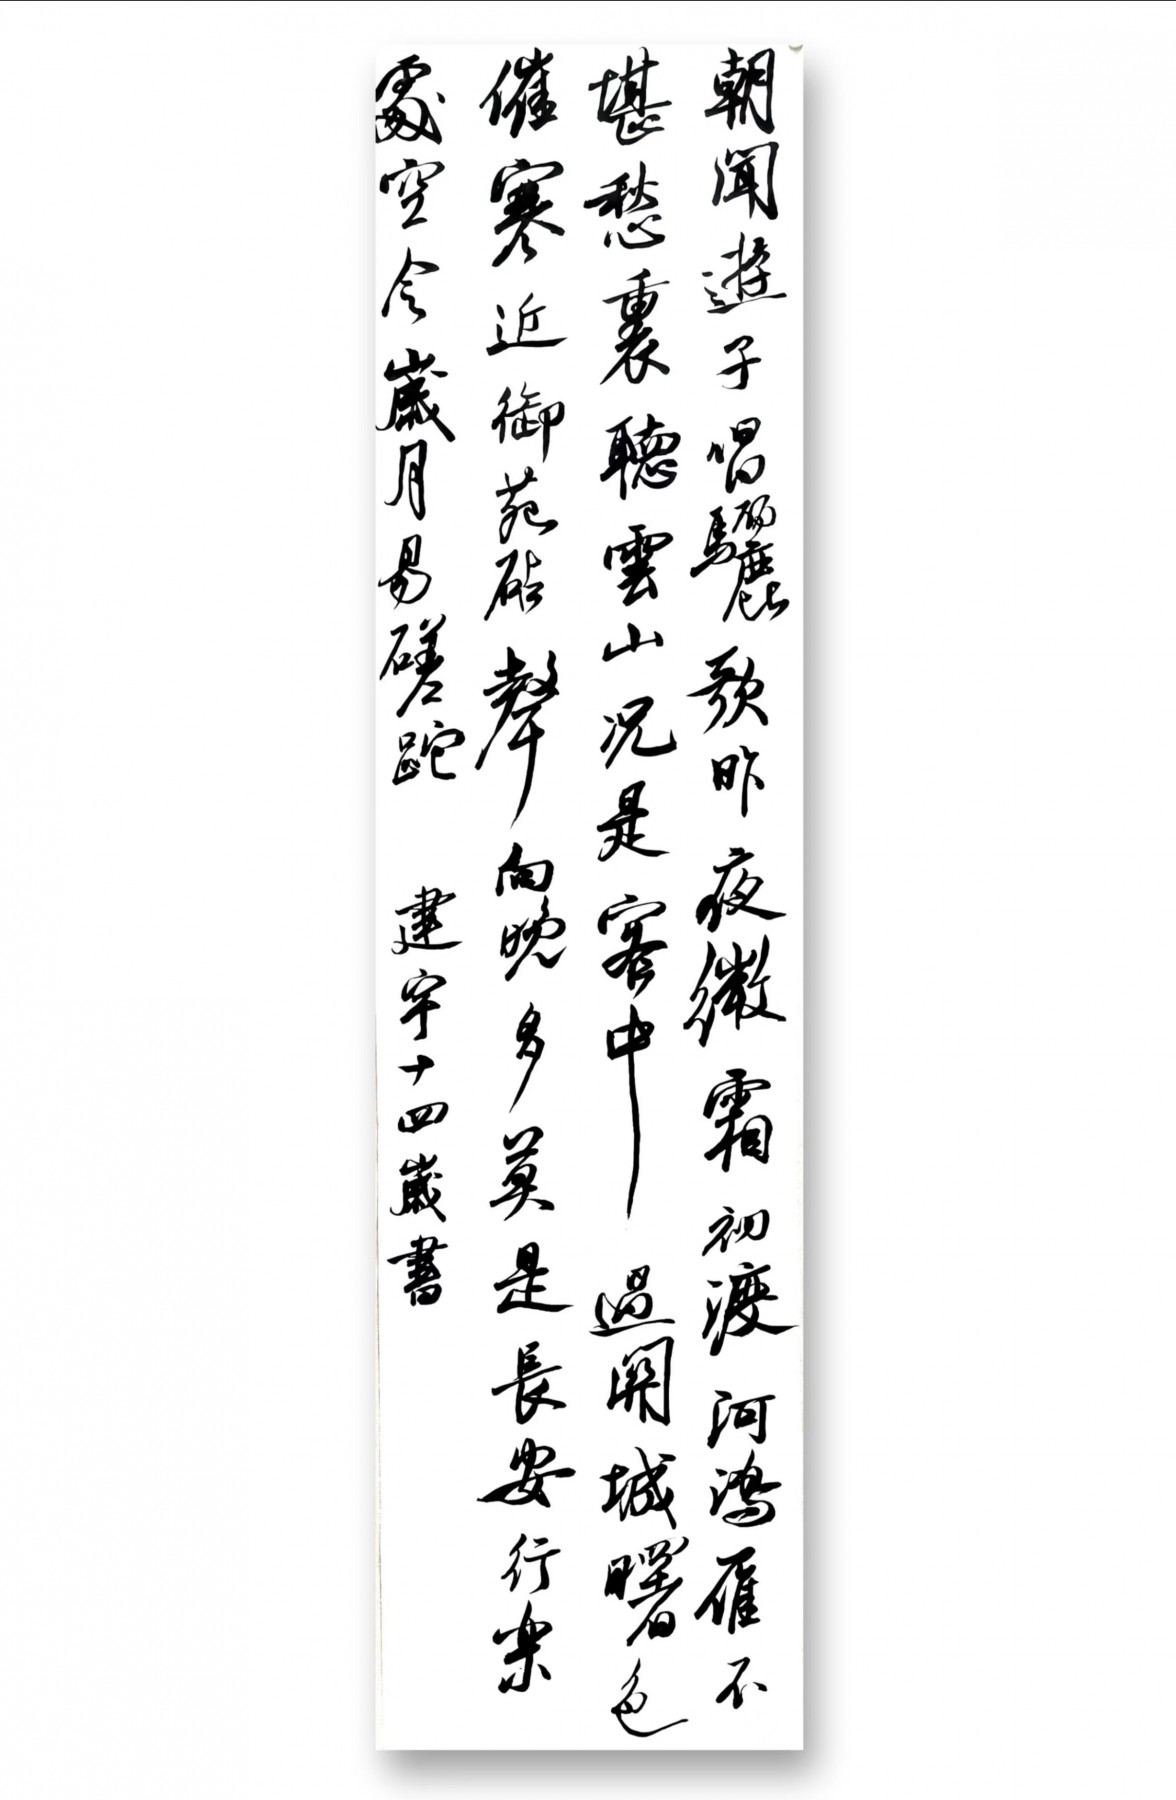 朝聞遊子唱驪歌昨夜微霜初渡河鴻雁不
堪愁裏聽雲山況是客中過關城曙色
催寒近御苑砧聲向晚多莫是長安行樂
處空令歲月易蹉跎
建宇十四歲書